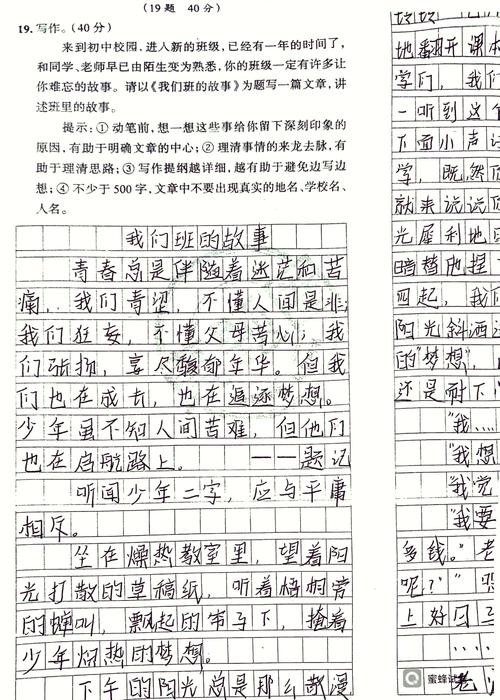 (19题 40分)
19. 写作。(40分)
来到初中校园,进入新的班级,已经有一年的时间了,
和同学、老师早已由陌生变为熟悉,你的班级一定有多让
你难忘的故事。请以《我们班的故事》为题写一篇文章,讲
述班里的故事。
提示:① 动笔前,想一想这些事给你留下深刻印象的
原因,有助于明确文章的中心;② 理清事情的来龙去脉,有
助于理清思路;③ 写作提纲越详细,越有助于避免边写边
想;④ 不少于500字,文章中不要出现真实的地名、学校名、
人名。
我们班的故事
青春总是伴随着迷茫和苦
痛,我们青涩,不懂人间是非;
我们狂妄,不懂父母苦心;我
们张扬,享尽酸甜年华。但我
们也在成长,也在追逐梦想。
少年虽不知人间苦难,但他们
也在启航路上。——题记
听闻少年二字,应与平庸
相斥。
坐在燥热教室里,望着阳
光打散的草稿纸,听着梧桐旁
的蝉叫,飘起的帘子下,掩着
少年炽热的梦想。
下午的阳光总是那么散漫
地翻开课本
学们,我们
一听到这个
下面小声讨
学,既然
就来说说
光犀利地
暗替他捏
四起,我们
阳光斜洒
的"梦想",
还是耐下
"我....
"我想
"我觉
"我要
多钱。"老
呢?""
上好
....
老
蜜蜂试